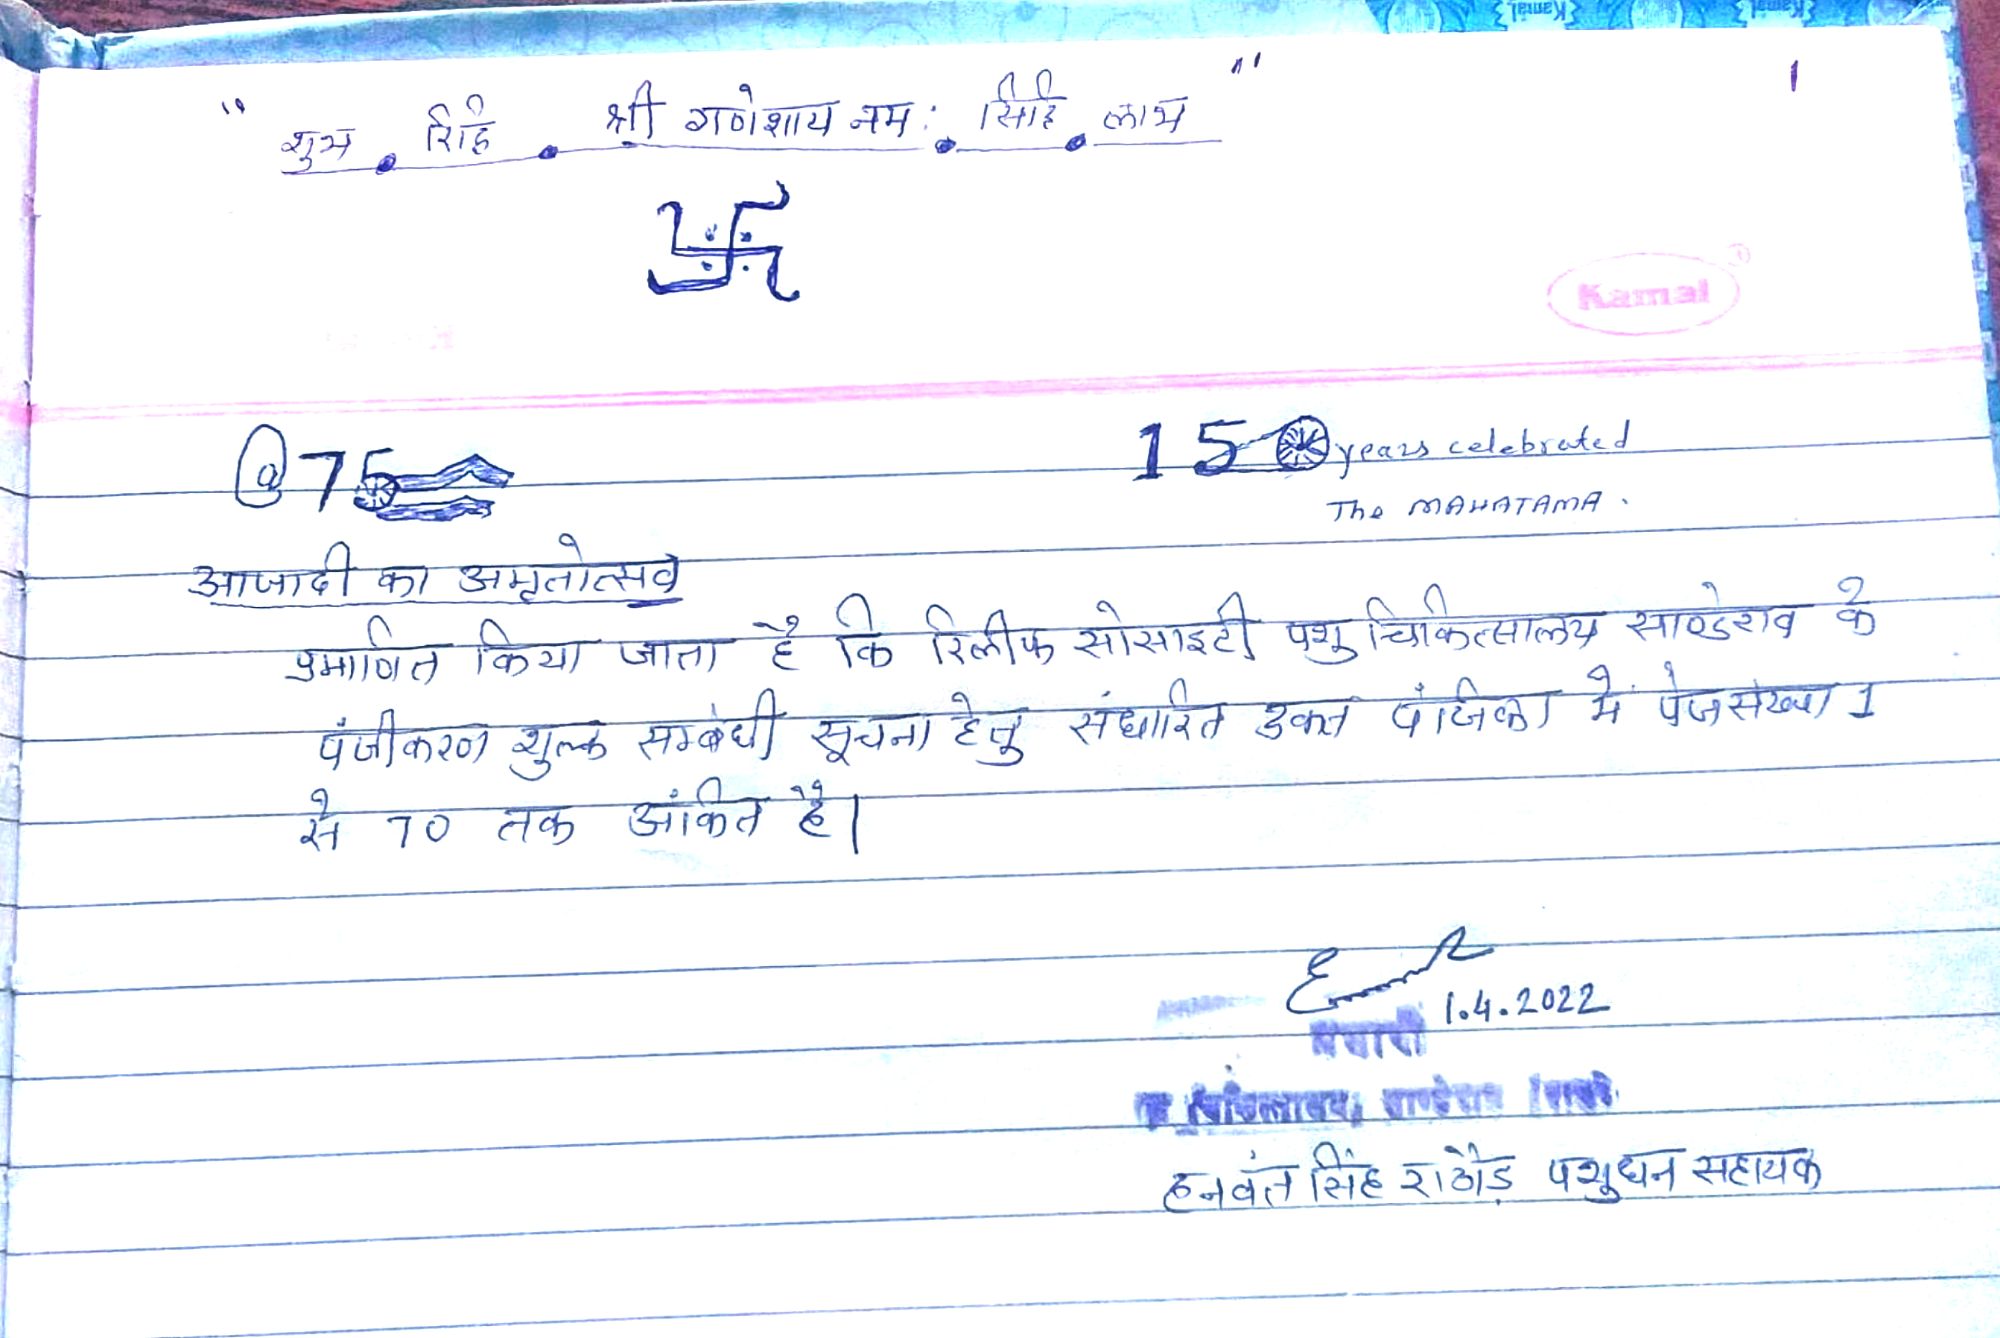 1
" शुभ . रिद्धि . श्री गणेशाय नम: . सिद्धि . लाभ "
Kamal
@75
150 years celebrated
The MAHATAMA.
आजादी का अमृतोत्सव
प्रमाणित किया जाता है कि रिलीफ सोसाइटी पशु चिकित्सालय साण्डेराव के
पंजीकरण शुल्क सम्बंधी सूचना हेतु संधारित उक्त पंजिका में पेज संख्या 1
से 70 तक अंकित है।
1.4.2022
प्रभारी
चिकित्सालय, साण्डेराव
हनवंत सिंह राठौड़ पशुधन सहायक